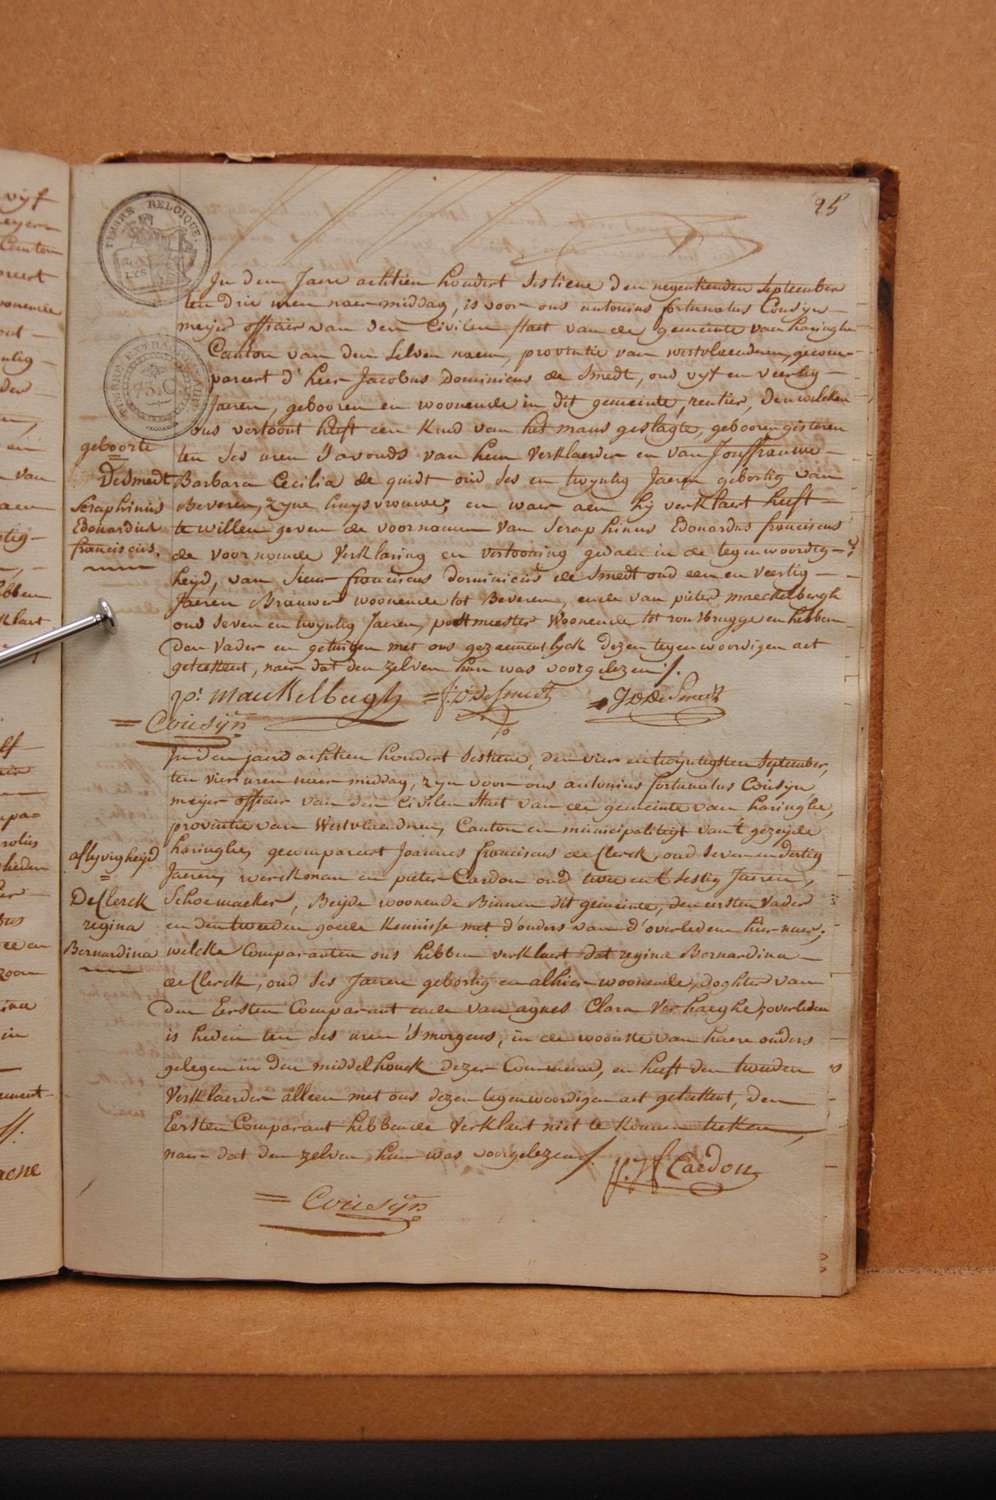 95
TIMBRE BELGIQUE
In den Jaere achttien hondert sestiene den negenthienden September
ten drie uren naer middag, is voor ons antonius fortunatus Cousijn
meijer officier van den Civilen staet van de gemeente van haringhe
Canton van den selven naem, provintie van westvlaenderen, gecom-
pareert d'heer Jacobus Dominicus de Smedt, oud vijf en veertig
Jaeren, gebooren en woonende in dit gemeente, rentier, denwelcken
ons vertoont heeft een kind van het mans geslagte, gebooren gisteren
ten ses uren s'avonds van hem verklaerder en van Jouffrauwe
Barbara Cecilia de quidt oud ses en twyntig Jaeren gebortig van
Beveren, zyne huysvrouwe; en waer aen hy verklaert heeft
te willen geven de voornamen van Seraphinus Edouardus franciscus
de voornoemde verklaring en vertooning gedaen in de tegenwoordig-
heyd, van sieur franciscus Dominicus de Smedt oud een en veertig
Jaeren Brauwer woonende tot Beveren, ende van pieter maeckelbergh
oud seven en twyntig Jaeren, postmeester woonende tot rousbrugge en hebben
den vader en getuigen met ons gezaementlyck dezen tegenwoordigen act
geteekent, naer dat den zelven hun was voorgelezen /.
geboorte
Desmedt
Seraphinus
Edouardus
franciscus.
pr. mackelbergh = f: D: DeSmedt = J D De Smedt
= Cousijn
In den jaere achttien hondert sestiene, den vier en twyntigsten September,
ten vier uren naer middag, zyn voor ons antonius fortunatus Cousijn
meijer officier van den Civilen staet van de gemeente van haringhe,
provintie van Westvlaendren, Canton en municipaliteyt van't gezeyde
haringhe, gecompareert Joannes franciscus de Clerck, oud seven en dertig
Jaeren, werckman en pieter Cardon oud twee en t'sestig Jaeren,
Schoemaeker, Beyde woonende Binnen dit gemeente, den eersten vader
en den tweeden goede kennisse met d'ouders van d'overledene hier naer.
welcke Comparanten ons hebben verklaert dat regina Bernardina
de Clerck, oud ses Jaeren gebortig en alhier woonende, doghter van
den Eersten Comparant ende van agnes Clara Verhaeghe, overleden
is heden ten ses uren 's morgens, in de woonste van haere ouders
gelegen in den middelhouck dezer Commune, en heeft den tweeden
Verklaerder alleen met ons dezen tegenwoordigen act geteekent, den
Eersten Comparant hebbende verklaert niet te konnen teeken,
naer dat den zelven hun was voorgelezen /.
aflyvigheyd
=
De Clerck
regina
Bernardina
Cardon
= Cousijn